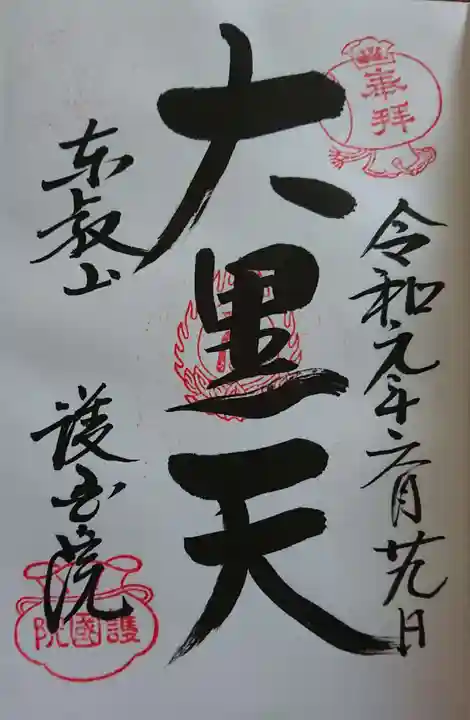 奉拝
令和元年六月廿九日
大黒天
东叡山
護国院
護國院